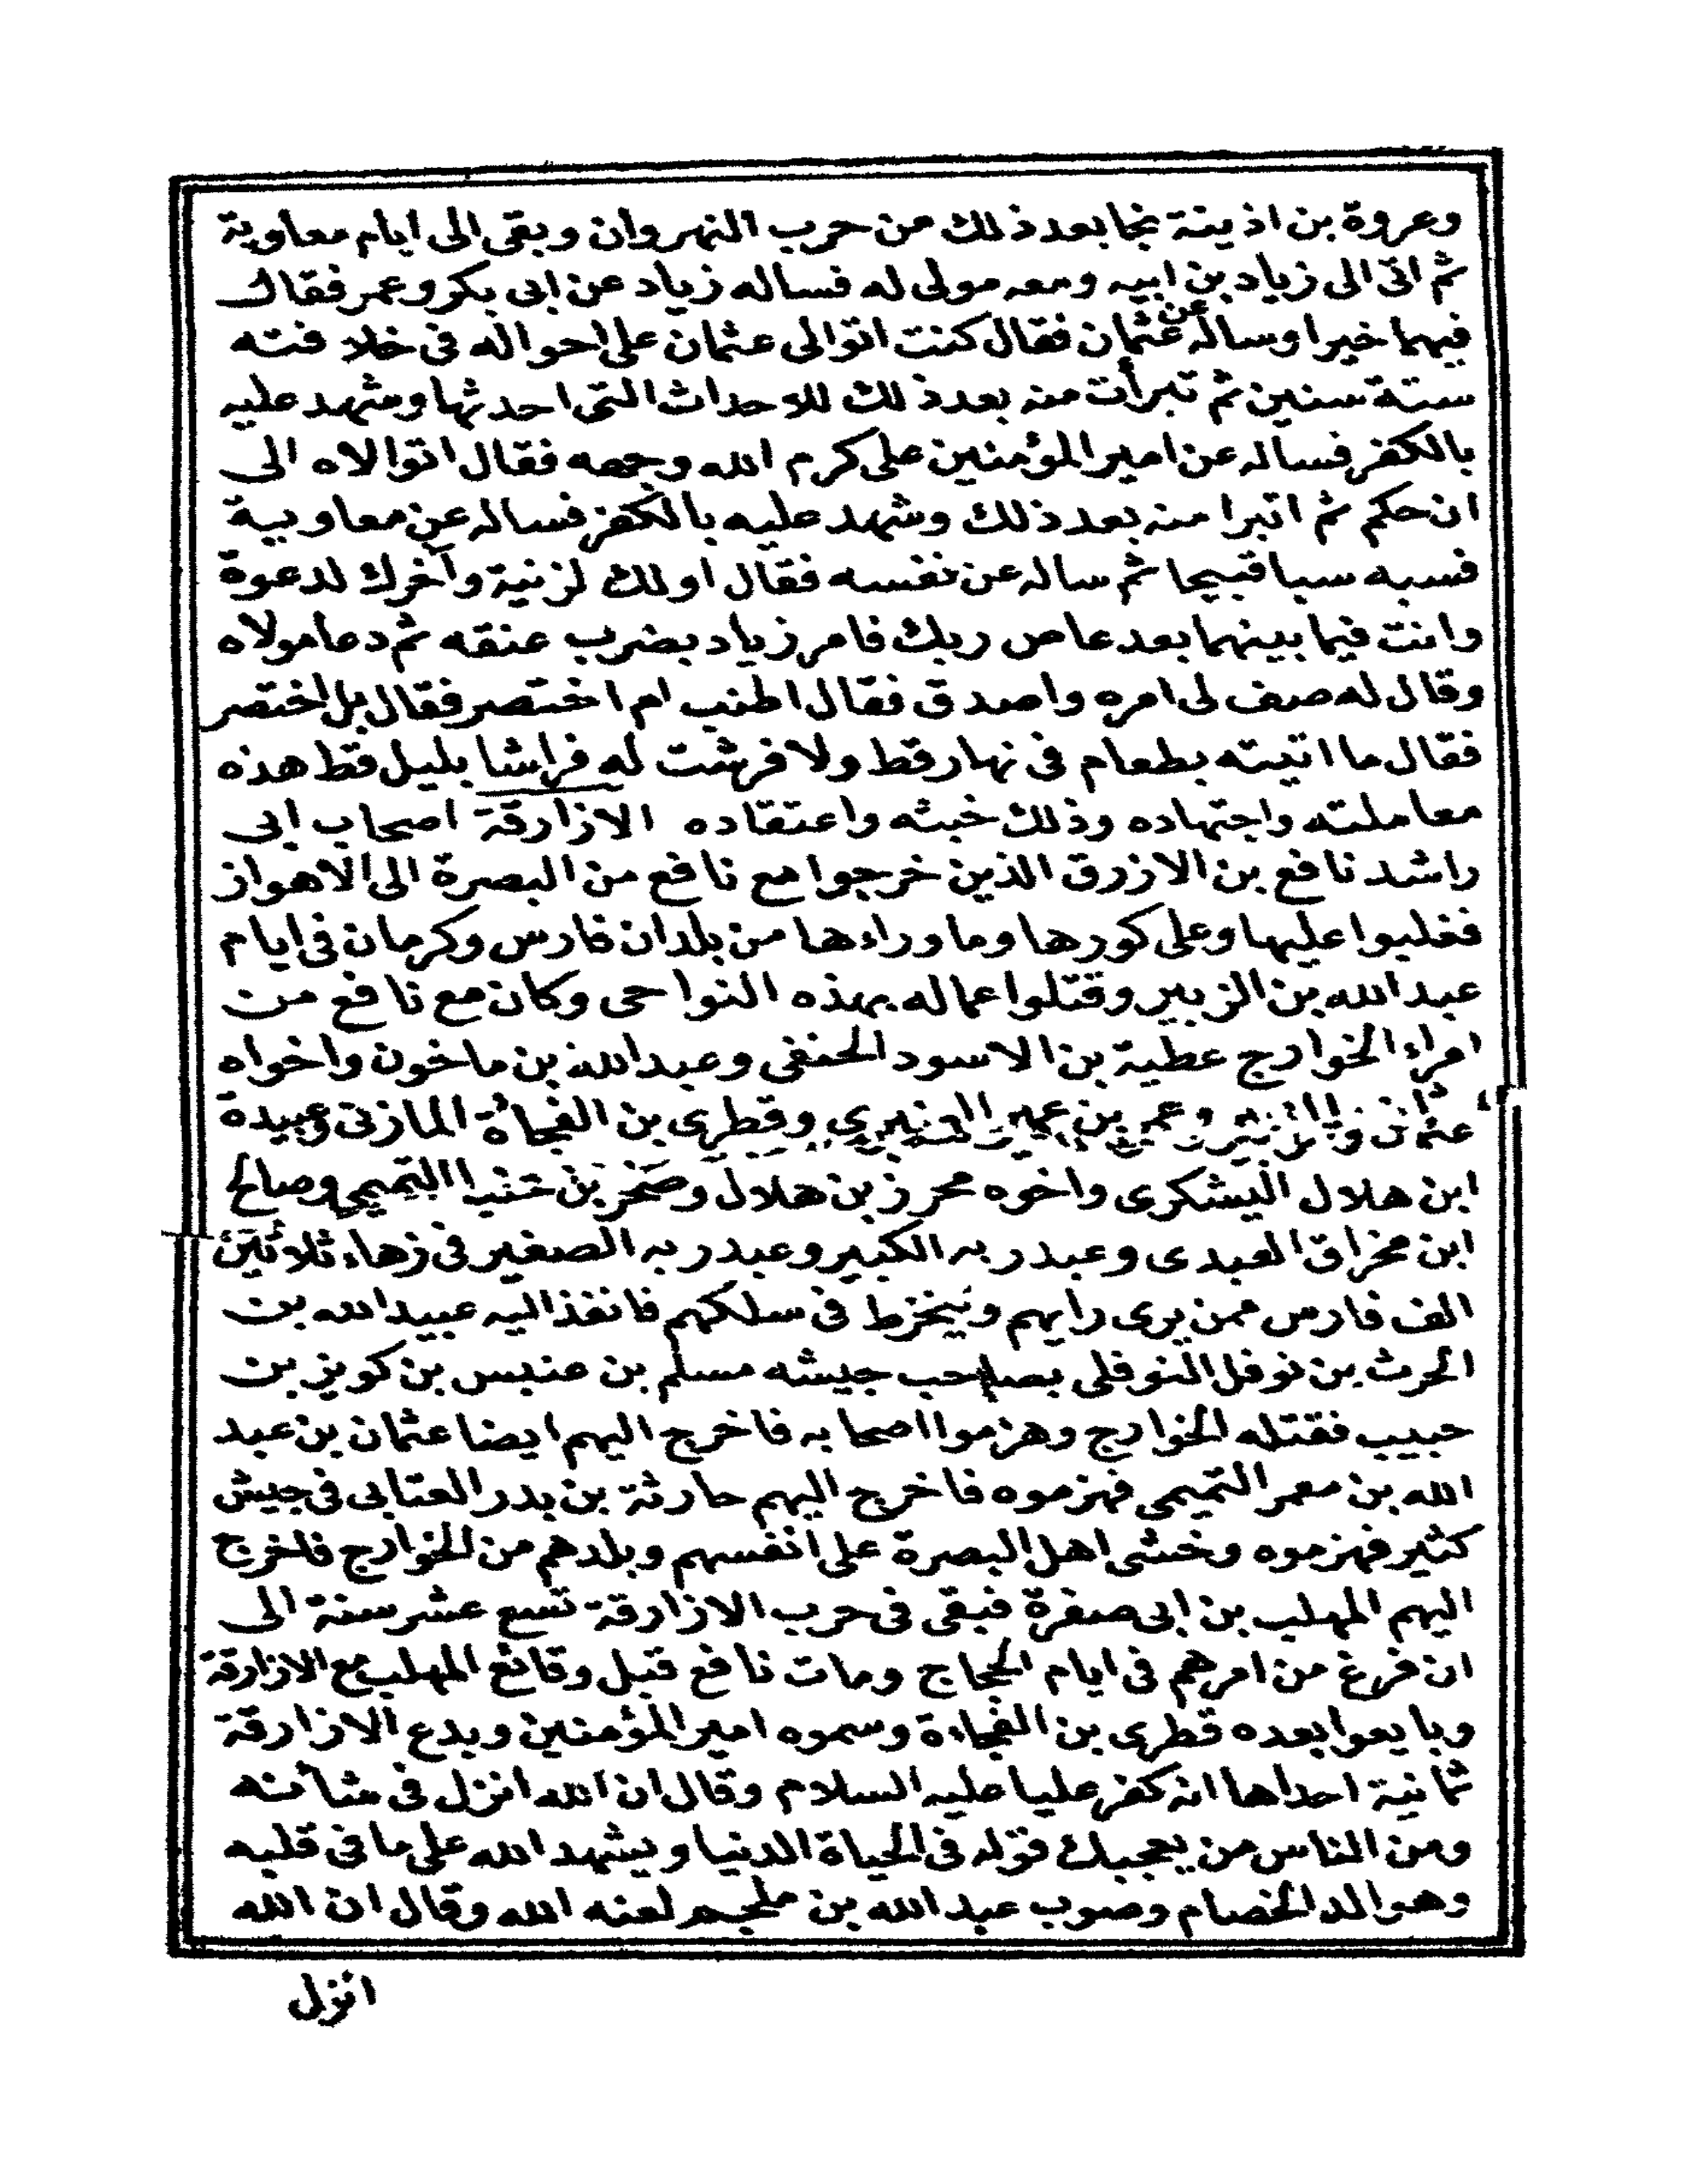 وعروة بن اذينة نجا بعد ذلك من حرب النهروان وبقى الى ايام معاوية
ثم اتى الى زياد بن ابيه ومعه مولى له فساله زياد عن ابى بكر وعمر فقال
فيهما خيرا وساله عن عثمان فقال كنت اتوالى عثمان على احواله فى خلافته
ستة سنين ثم تبرأت منه بعد ذلك للاحداث التى احدثها وشهد عليه
بالكفر فساله عن امير المؤمنين على كرم الله وجهه فقال اتوالاه الى
ان حكم ثم اتبرا منه بعد ذلك وشهد عليه بالكفر فساله عن معاوبية
فسبه سبا قبيحا ثم ساله عن نفسه فقال اولك لزنية وآخرك لدعوة
وانت فيما بينهما بعد عاص ربك فامر زياد بضرب عنقه ثم دعا مولاه
وقال له صف لى امره واصدق فقال اطنب ام اختصر فقال بل اختصر
فقال ما اتيته بطعام فى نهار قط ولا فرشت له فراشا بليل قط هذه
معاملته واجتهاده وذلك خبثه واعتقاده الازارقة اصحاب ابى
راشد نافع بن الازرق الذين خرجوا مع نافع من البصرة الى الاهواز
فغلبوا عليها وعلى كورها وما وراءها من بلدان فارس وكرمان فى ايام
عبد الله بن الزبير وقتلوا عماله بهذه النواحى وكان مع نافع من
امراء الخوارج عطية بن الاسود الحنفى وعبد الله بن ماخون واخواه
عثمان والزبير وعمر بن عمير العنبرى وقطرى بن الفجاة المازنى وعبيدة
ابن هلال اليشكرى واخوه محرز بن هلال وصخر بن حنبا التميمى وصالح
ابن مخراق العبدى وعبد ربه الكبير وعبد ربه الصغير فى زهاء ثلاثين
الف فارس ممن يرى رايهم وينخرط فى سلكهم فانفذ اليه عبيد الله بن
الحرث بن نوفل النوفلى بصاحب جيشه مسلم بن عنبس بن كويز بن
حبيب فقتله الخوارج وهزموا اصحابه فاخرج اليهم ايضا عثمان بن عبد
الله بن معمر التميمى فهزموه فاخرج اليهم حارثة بن بدر العتابى فى جيش
كثير فهزموه وخشى اهل البصرة على انفسهم وبلدهم من الخوارج فاخرج
اليهم المهلب بن ابى صفرة فبقى فى حرب الازارقة تسع عشر سنة الى
ان فرغ من امرهم فى ايام الحجاج ومات نافع قبل وقائع المهلب مع الازارقة
وبايعوا بعده قطرى بن الفجاءة وسموه امير المؤمنين وبدع الازارقة
ثمانية احداها انه كفر عليا عليه السلام وقال ان الله انزل فى شأنه
ومن الناس من يعجبك قوله فى الحياة الدنيا ويشهد الله على ما فى قلبه
وهو الد الخصام وصوب عبد الله بن ملجم لعنه الله وقال ان الله
انزل